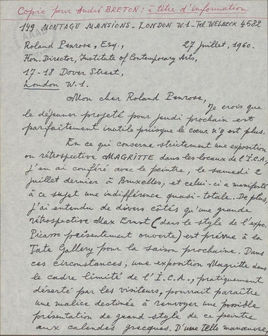 Copie pour André BRETON : à titre d'information
149 MONTAGU MANSIONS - LONDON W.1 - Tel. WELBECK 4522
Roland Penrose, Esq., 27 juillet, 1960.
Hon. Director, Institute of Contemporary Arts,
17-18 Dover Street,
London W.1.
Mon cher Roland Penrose,
Je crois que
le déjeuner projeté pour jeudi prochain est
parfaitement inutile puisque le cœur n'y est plus.
En ce qui concerne strictement une exposition
ou rétrospective MAGRITTE dans les locaux de l'I.C.A.,
j'en ai conféré avec le peintre, le samedi 2
juillet dernier à Bruxelles, et celui-ci a manifesté
à ce sujet une indifférence quasi-totale. De plus,
j'ai entendu de divers côtés qu'une grande
rétrospective Max Ernst (dans le style de l'expo.
Picasso présentement ouverte) est prévue à la
Tate Gallery pour la saison prochaine. Dans
ces circonstances, une exposition Magritte dans
le cadre limité de l'I.C.A., pratiquement
déserté par les visiteurs, pourrait paraître
une malice destinée à renvoyer une possible
présentation de grand style de ce peintre
aux calendes grecques. D'une telle manœuvre,